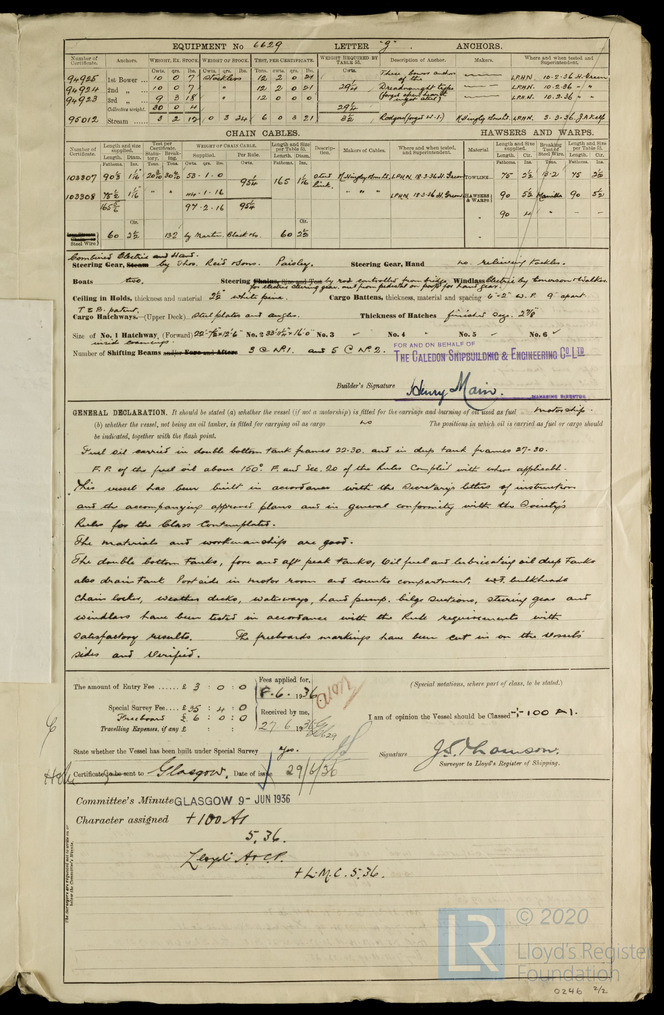 EQUIPMENT No 6629 LETTER "J" ANCHORS.
Number of Certificate. Anchors. WEIGHT, EX. STOCK. WEIGHT OF STOCK. TEST, PER CERTIFICATE. WEIGHT REQUIRED BY TABLE 53. Description of Anchor. Makers. Where and when tested and Superintendent.
Cwts. qrs. lbs. Cwts. qrs. lbs. Tons. cwts. qrs. lbs. Cwts.
94925 1st Bower 10 0 7 Stockless 12 2 0 21 Three bower anchor of the L.P.H.N. 10.2.36 H. Green
94924 2nd „ 10 0 7 " 12 2 0 21 29¼ Dreadnought type L.P.H.N. 10.2.36 " "
94923 3rd „ 9 3 18 " 12 0 0 0 L.P.H.N. 10.2.36 " "
Collective weight. 30 0 4 29¼
95012 Stream 3 2 12 0 3 24 6 0 3 21 3½ L.P.H.N. 3.3.36
CHAIN CABLES. HAWSERS AND WARPS.
Number of Certificate. Length and size supplied. Test per Certificate. WEIGHT OF CHAIN CABLE. Length and Size per Table 53. Description. Makers of Cables. Where and when tested, and Superintendent. Material Length and size supplied. Breaking Test of Steel Wire. Length and Size per Table 53.
Fathoms. Diam. Statutory. Breaking. Supplied. Per Rule. Fathoms. Diam. Fathoms. Cir. Tons. Fathoms. Cir.
103307 90⅝ 1 1/16 53-1-0 95¼ 165 1 1/16 Stud link. N. Hingley & Sons Ld L.P.H.N. 18.3.36 H. Green TOWLINE 75 2½ 75 2½
103308 75⅝ 1 1/16 " " 44-1-16 " " " L.P.H.N. 18.3.36 H. Green HAWSERS & WARPS 90 5½ Manilla 90 5½
165⅝ 97-2-16 95¼ 90 " - -
Steel Wire 60 2½ 60 2½
Combined Electric and Hand.
Steering Gear, Steam by Thos. Reid & Sons. Paisley. Steering Gear, Hand no. relieving tackles.
Boats two. Steering Chains, Size and Test by rod controlled from bridge Windlass Electric by Emerson Walker.
Ceiling in Holds, thickness and material 2½" white pine. Cargo Battens, thickness, material and spacing 6"×2" W.P. 9" apart
Cargo Hatchways.—(Upper Deck) Steel plates and angles. Thickness of Hatches finished size. 2⅜
Size of No. 1 Hatchway, (Forward) No. 2 No. 3 ✓ No. 4 ✓ No. 5 No. 6 ✓
inside coamings.
Number of Shifting Beams and/or Fore and Afters 3 @ No 1. and 5 @ No 2.
FOR AND ON BEHALF OF
THE CALEDON SHIPBUILDING & ENGINEERING CO. LTD
Builder's Signature Henry Main.
MANAGING DIRECTOR
GENERAL DECLARATION. It should be stated (a) whether the vessel (if not a motorship) is fitted for the carriage and burning of oil used as fuel motorship.
(b) whether the vessel, not being an oil tanker, is fitted for carrying oil as cargo no The positions in which oil is carried as fuel or cargo should
be indicated, together with the flash point.
Fuel oil carried in double bottom tank frames 22-30. and in deep tank frames 27-30.
F.P. of the fuel oil above 150° F. and Sec. 20 of the Rules Complied with where applicable.
This vessel has been built in accordance with the Secretary's letters of instruction
and the accompanying approved plans and in general conformity with the Society's
Rules for the Class Contemplated.
The materials and workmanship are good.
The double bottom tanks, fore and aft peak tanks, Oil fuel and lubricating oil deep tanks
also drain tank Port side in motor room and counter compartment, W.T. bulkheads
chain locker, weather decks, waterways, hand pump, bilge suctions, steering gear and
windlass have been tested in accordance with the Rule requirements with
satisfactory results. The freeboards markings have been cut in on the vessels
sides and verified.
The amount of Entry Fee £ 3 : 0 : 0 Fees applied for, (Special notations, where part of class, to be stated.)
8.6.1936
Special Survey Fee £ 35 : 4 : 0 Received by me,
Freeboard £ 6 : 0 : 0 27.6.1936 I am of opinion the Vessel should be Classed +100 A1.
Travelling Expenses, if any £ : :
State whether the Vessel has been built under Special Survey Yes. Signature J. S. Thomson.
Surveyor to Lloyd's Register of Shipping.
Certificate to be sent to Glasgow. Date of issue 29/6/36
Committee's Minute GLASGOW 9 - JUN 1936
Character assigned +100 A1
5.36.
Lloyd's A & C.P.
+ L.M.C. 5.36.
LR © 2020
Lloyd's Register
Foundation
0246 2/2